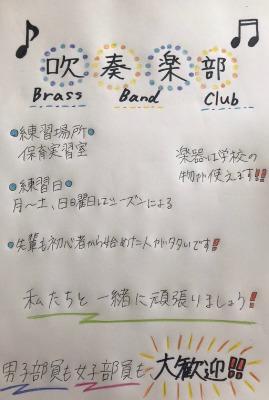 吹奏楽部
Brass Band Club
●練習場所●
保育実習室
楽器は学校の
物が使えます!!
●練習日●
月〜土、日曜日はシーズンによる
●先輩も初心者から始めた人が多いです!!
私たちと一緒に頑張りましょう!
男子部員も女子部員も大歓迎!!